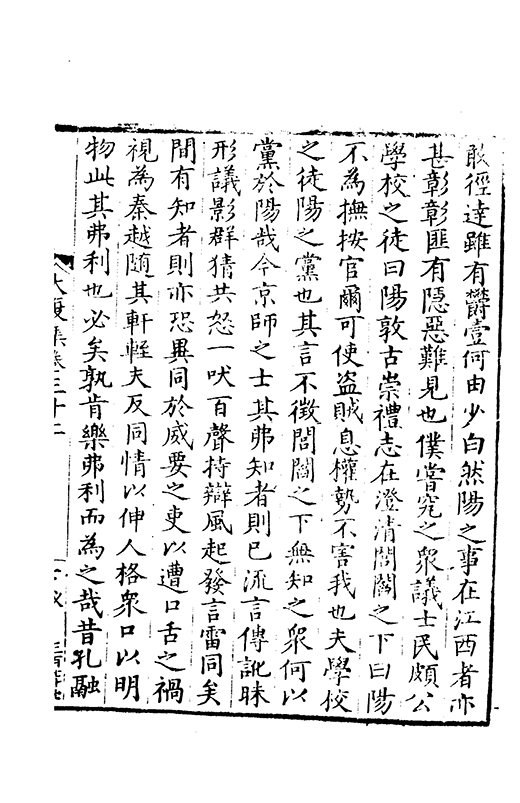 敢徑達雖有欝壹何由少白然陽之事在江西者亦
甚彰彰匪有隱惡難見也僕嘗究之衆議士民頗公
學校之徒曰陽敦古崇禮志在澄清閭閻之下曰陽
不為撫按官爾可使盗賊息權勢不害我也夫學校
之徒陽之黨也其言不徵閭閻之下無知之衆何以
黨於陽哉今京師之士其弗知者則已流言傳訛昧
形議影群猜共怒一吠百聲持辯風起發言雷同矣
間有知者則亦恐異同於威要之吏以遭口舌之禍
視為秦越随其軒輊夫反同情以伸人格衆口以明
物此其弗利也必矣孰肯樂弗利而為之哉昔孔融
大復集卷三十二